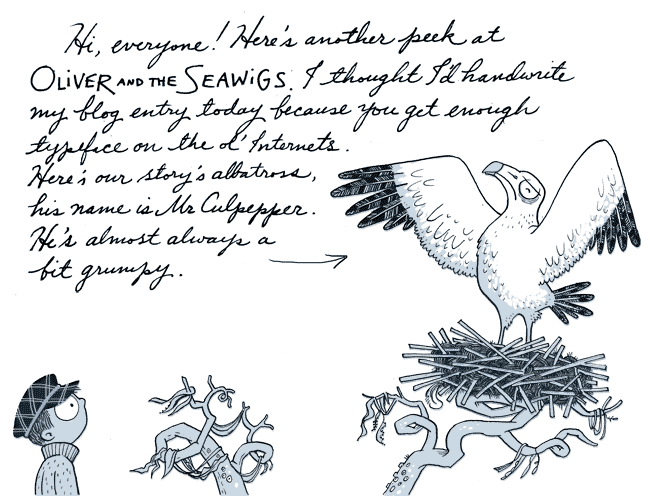 Hi, everyone! Here's another peek at
OLIVER AND THE SEAWIGS. I thought I'd handwrite
my blog entry today because you get enough
typeface on the ol' Internets.
Here's our story's albatross,
his name is Mr Culpepper.
He's almost always a
bit grumpy.